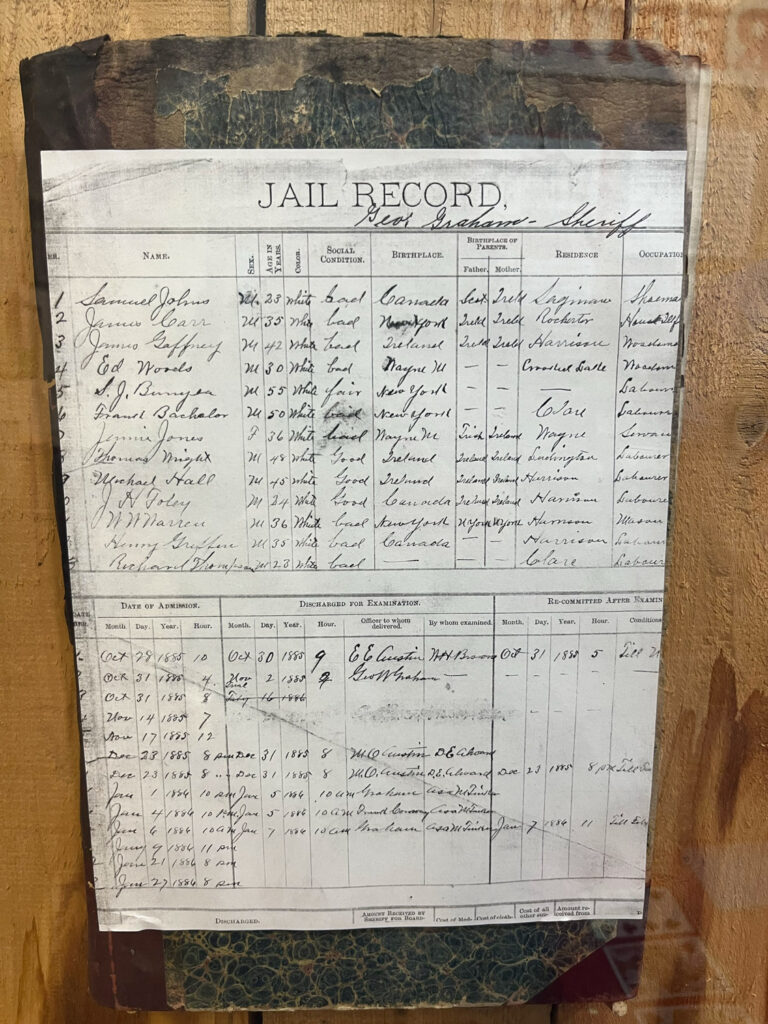 JAIL RECORD,
Geo Graham - Sheriff
NAME. SEX. AGE IN YEARS. COLOR. SOCIAL CONDITION. BIRTHPLACE. BIRTHPLACE OF PARENTS. Father. Mother. RESIDENCE OCCUPATIO
1 Samuel Johns M 23 White bad Canada Scot Ireld Saginaw Shoema
2 James Carr M 35 White bad New York Ireld Ireld Rochester
3 James Gaffney M 42 White bad Ireland Ireld Ireld Harrison Woodsma
4 Ed Woods M 30 White bad Wayne M — — Crooked Lake Woodsm
5 S. J. M 55 White fair New York — — — Labour
6 Frank Bachelor M 50 White bad New York — — Clare Labour
7 Jennie Jones F 36 White bad Wayne M Irish Ireland Wayne Servan
8 Thomas Wright M 48 White Good Ireland Ireland Ireland Ludington Labourer
9 Michael Hall M 45 White Good Ireland Ireland Ireland Harrison Labourer
J H Foley M 24 White Good Canada Ireland Ireland Harrison Laboure
W W Warren M 36 White bad New York N York N York Harrison Mason
Henry Griffen M 35 White bad Canada — Harrison Labour
Richard Thompson M 23 White bad — Clare Labour
DATE OF ADMISSION. DISCHARGED FOR EXAMINATION. RE-COMMITTED AFTER EXAMIN
Month. Day. Year. Hour. Month. Day. Year. Hour. Officer to whom delivered. By whom examined. Month. Day. Year. Hour. Conditions
Oct 28 1885 10 Oct 30 1885 9 E E Austin W H Browne Oct 31 1885 5 Till
Oct 31 1885 4 Nov 2 1885 9 Geo W Graham —
Oct 31 1885 8 16 1886
Nov 14 1885 7
Nov 17 1885 12
Dec 23 1885 8 pm Dec 31 1885 8 M O Austin D. E. Alward
Dec 23 1885 8 " Dec 31 1885 8 M. O. Austin D. E. Alward Dec 23 1885 8 pm Till
Jan 1 1886 10 pm Jan 5 1886 10 am Graham Asa
Jan 4 1886 10 pm Jan 5 10 am Frank Conway Asa
Jan 6 1886 10 am Jan 7 1886 10 am Graham Asa Jan 7 1886 11 pm Till
Jany 9 1886 11 pm
Jan 21 1886 8 pm
Jan 27 1886 8 pm
DISCHARGED. AMOUNT RECEIVED BY SHERIFF FOR BOARD. Cost of Med. Cost of cloth. Cost of all other Amount received from